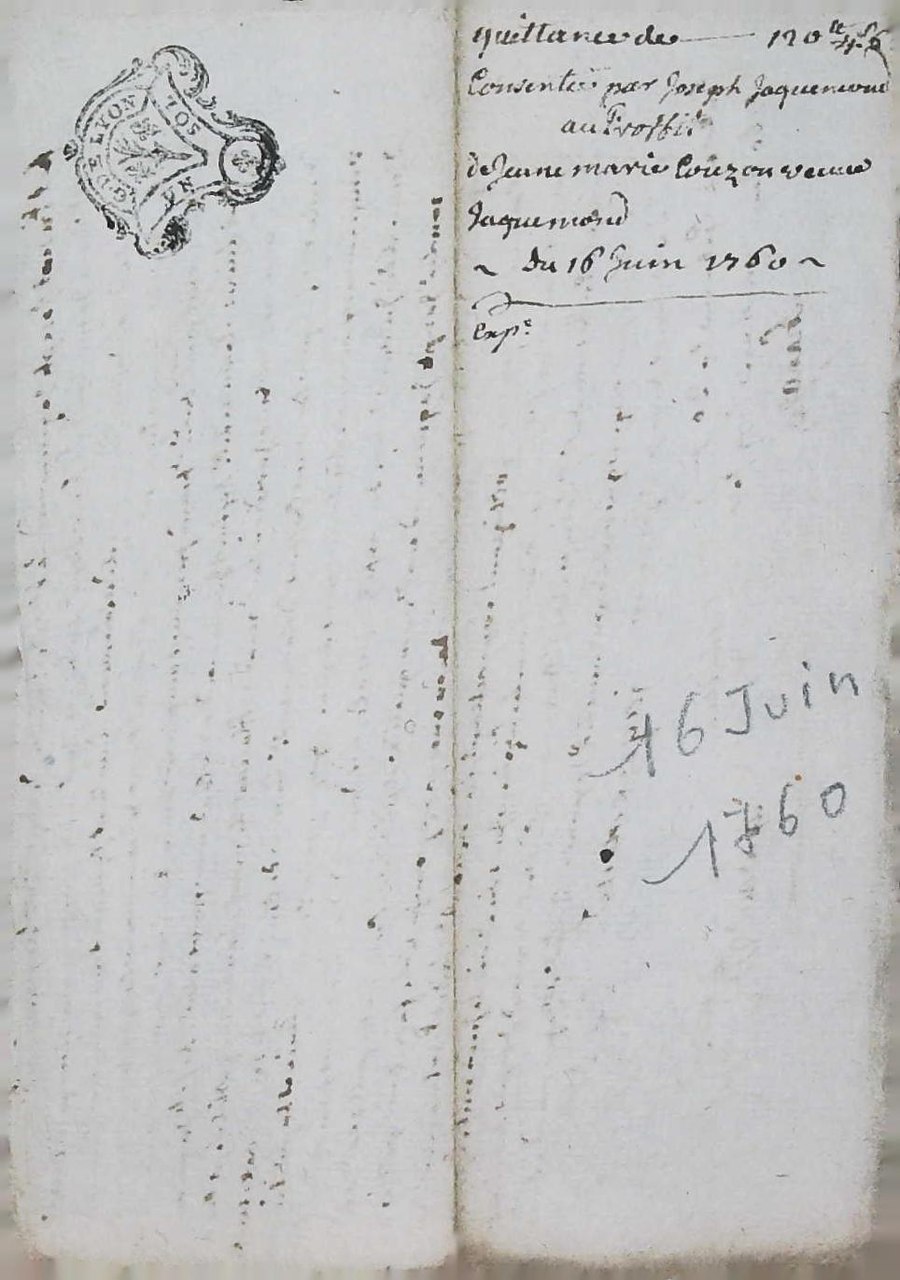 G. DE LYON
UN SOL
quittance de 120 lt 4 s
Consentie par Joseph Jaquemond
au Proffit
de Jeanne marie Couzon veuve
Jaquemond
~ du 16 Juin 1760 ~
Exp.e
16 Juin
1760